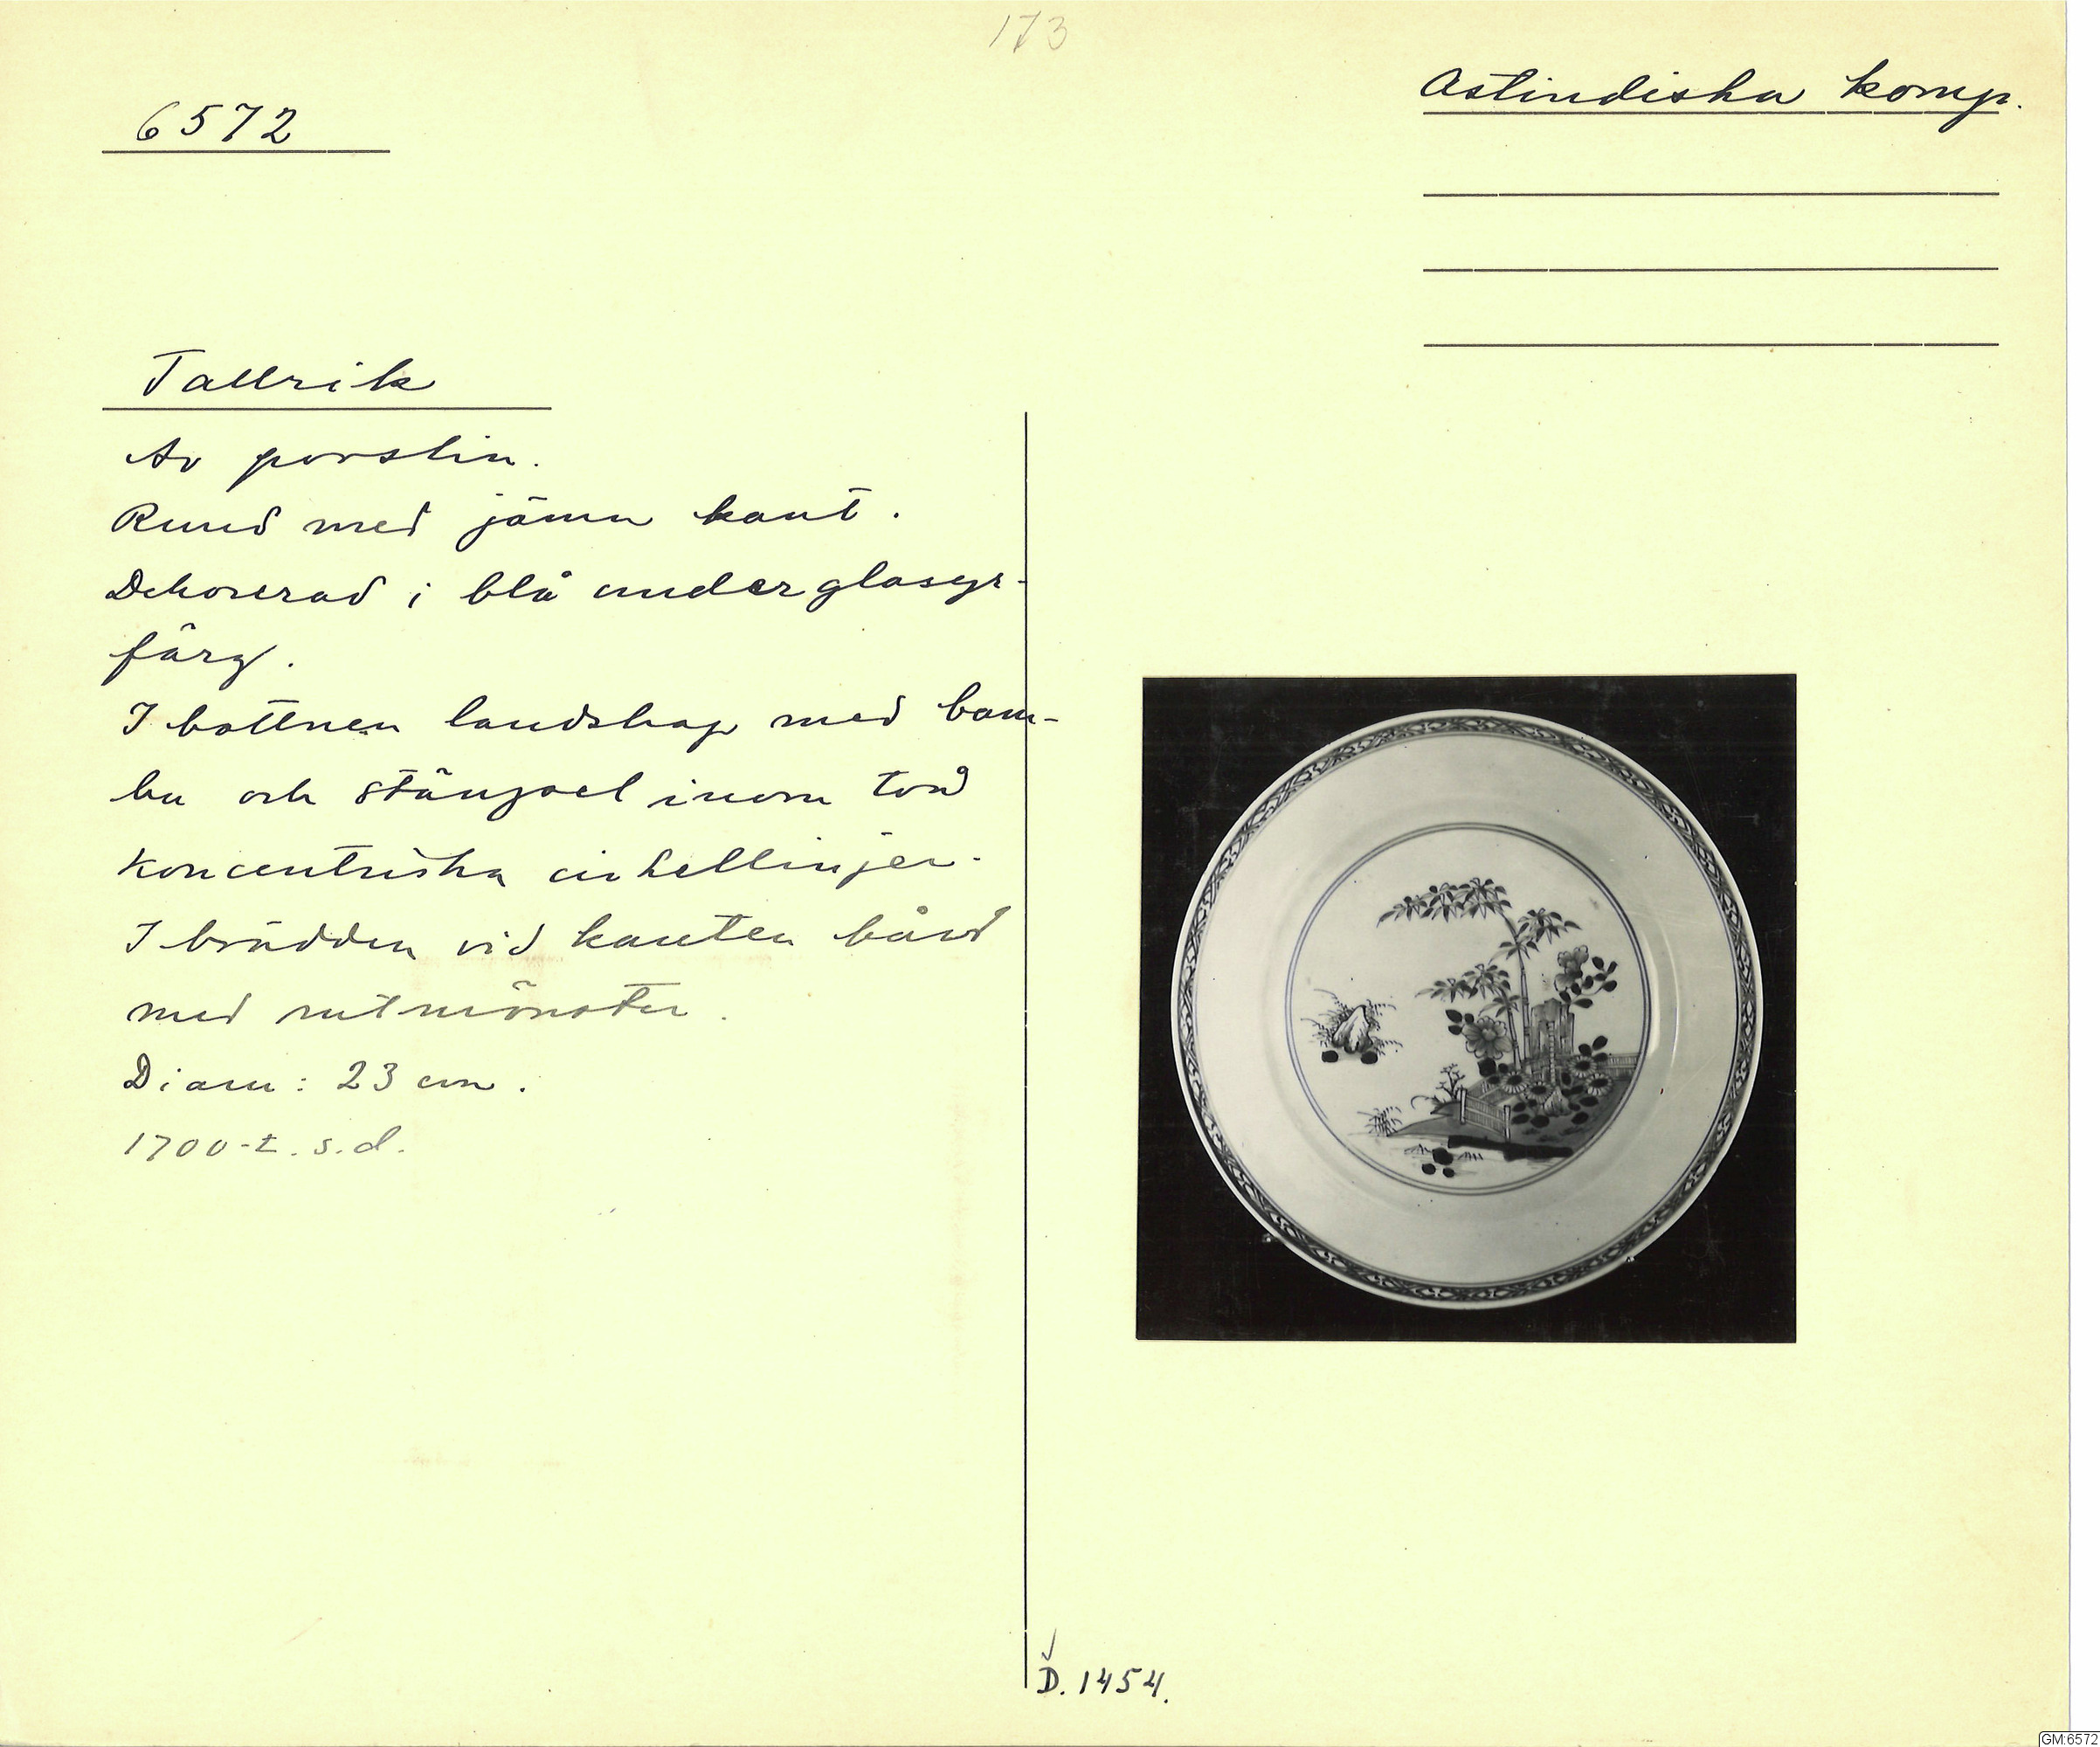 173
6572
Ostindiska komp.
Tallrik
Av porslin.
Rund med jämn kant.
Dekorerad i blå underglasyr-
färg.
I bottnen landskap med bam-
bu och stängsel inom två
koncentriska cirkellinjer.
I brädden vid kanten bård
med rutmönster.
Diam: 23 cm.
1700-t. s.d.
D. 1454.
GM:6572